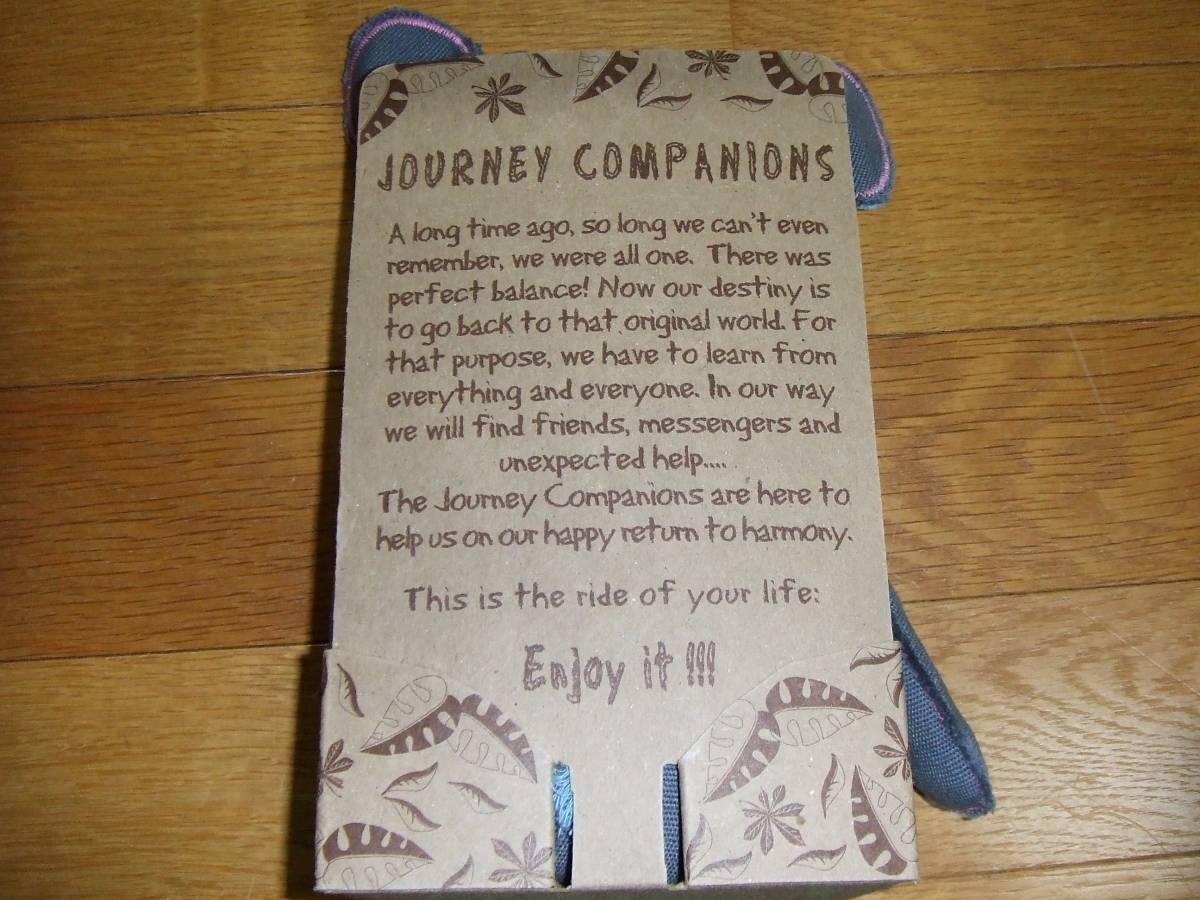 JOURNEY COMPANIONS
A long time ago, so long we can't even
remember, we were all one. There was
perfect balance! Now our destiny is
to go back to that original world. For
that purpose, we have to learn from
everything and everyone. In our way
we will find friends, messengers and
unexpected help....
The Journey Companions are here to
help us on our happy return to harmony.
This is the ride of your life:
Enjoy it !!!